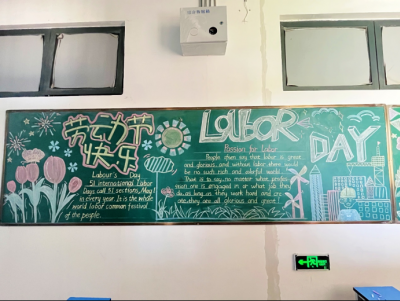 劳动节
快乐
Labour's Day
51 international labor
Days call 51 sections, May 1
in every year. It is the whole
world labor common festival
of the people.
LaboR
DAY
Passion for Labor
People often say that labor is great
and glorious, and without labor there would
be no such rich and colorful world.
That is to say, no matter what profes
man are is engaged in or what job they
do, as long as they work hard and cre
ate, they are all glorious and great!